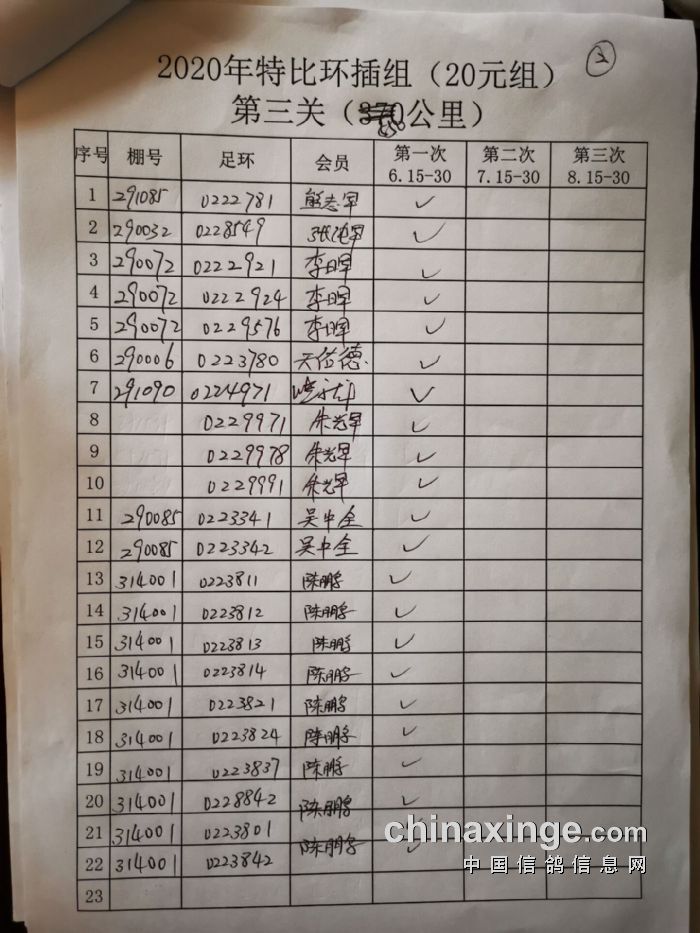 2020年特比环插组（20元组） 2
第三关（ 公里）
序号 棚号 足环 会员 第一次 6.15-30 第二次 7.15-30 第三次 8.15-30
1 291085 0222781 熊志军 ✓
2 290032 0228549 ✓
3 290072 0222921 李日军 ✓
4 290072 0222924 李日军 ✓
5 290072 0229576 李日军 ✓
6 290006 0223780 天佑德 ✓
7 291090 0224971 ✓
8 0229971 朱光军 ✓
9 0229978 朱光军 ✓
10 0229991 朱光军 ✓
11 290085 0223341 吴中全 ✓
12 290085 0223342 吴中全 ✓
13 314001 0223811 陈鹏 ✓
14 314001 0223812 陈鹏 ✓
15 314001 0223813 陈鹏 ✓
16 314001 0223814 陈鹏 ✓
17 314001 0223821 陈鹏 ✓
18 314001 0223824 陈鹏 ✓
19 314001 0223837 陈鹏 ✓
20 314001 0228842 陈鹏 ✓
21 314001 0223801 陈鹏
22 314001 0223842 ✓
23
chinaxinge.com
中国信鸽信息网